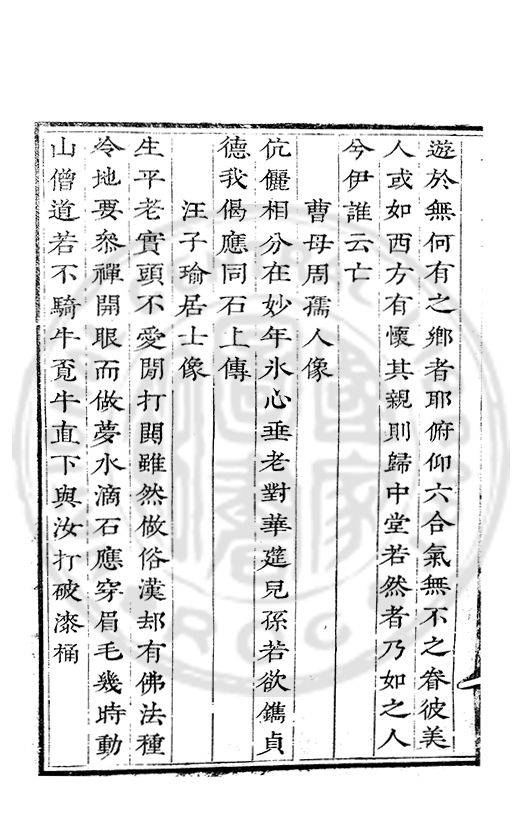 遊於無何有之鄉者耶俯仰六合氣無不之眷彼美
人或如西方有懷其親則歸中堂若然者乃如之人
兮伊誰云亡
曹母周孺人像
伉儷相分在妙年氷心垂老對華筵兒孫若欲鐫貞
德我偈應同石上傳
汪子瑜居士像
生平老實頭不愛閒打鬨雖然做俗漢却有佛法種
冷地要叅禪開眼而做夢水滴石應穿眉毛幾時動
山僧道若不騎牛覓牛直下與汝打破漆桶